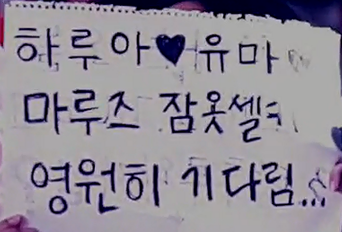 하루아♥유마
마루즈 잠옷셀카
영원히 기다림...